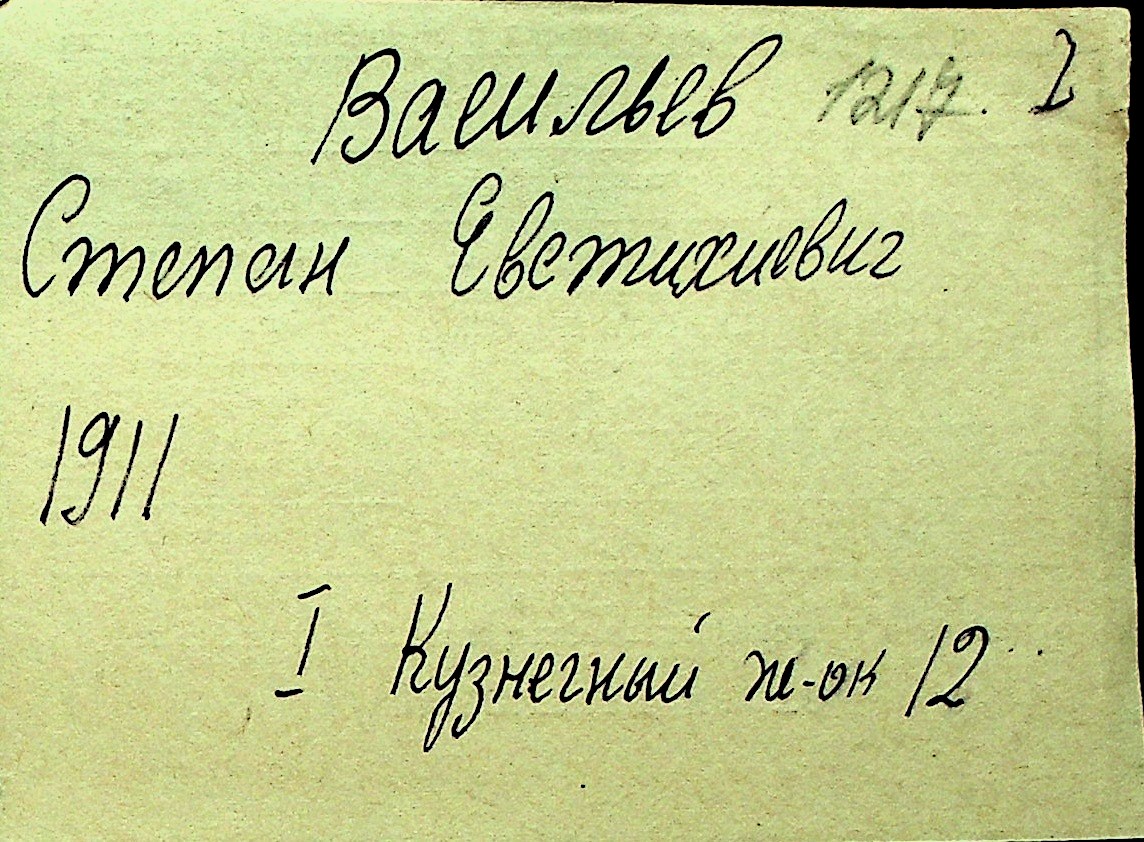 Васильев 1217. 2
Степан Евстихиевич
1911
I Кузнечный ж-ок 12